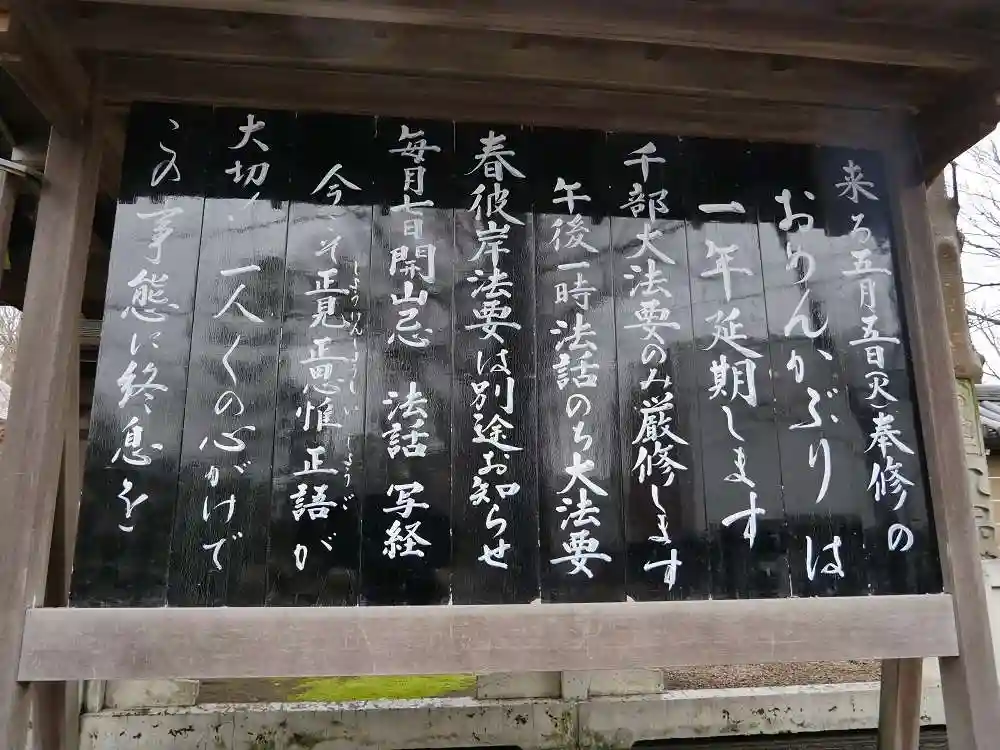 来る五月五日(火)奉修の
おめんかぶりは
一年延期します
千部大法要のみ厳修します
午後一時法話のち大法要
春彼岸法要は別途お知らせ
毎月七日開山忌 法話 写経
今こそ正見正思惟正語が
しょうけんしょうしいしょうご
大切!一人々の心がけで
この事態に終息を